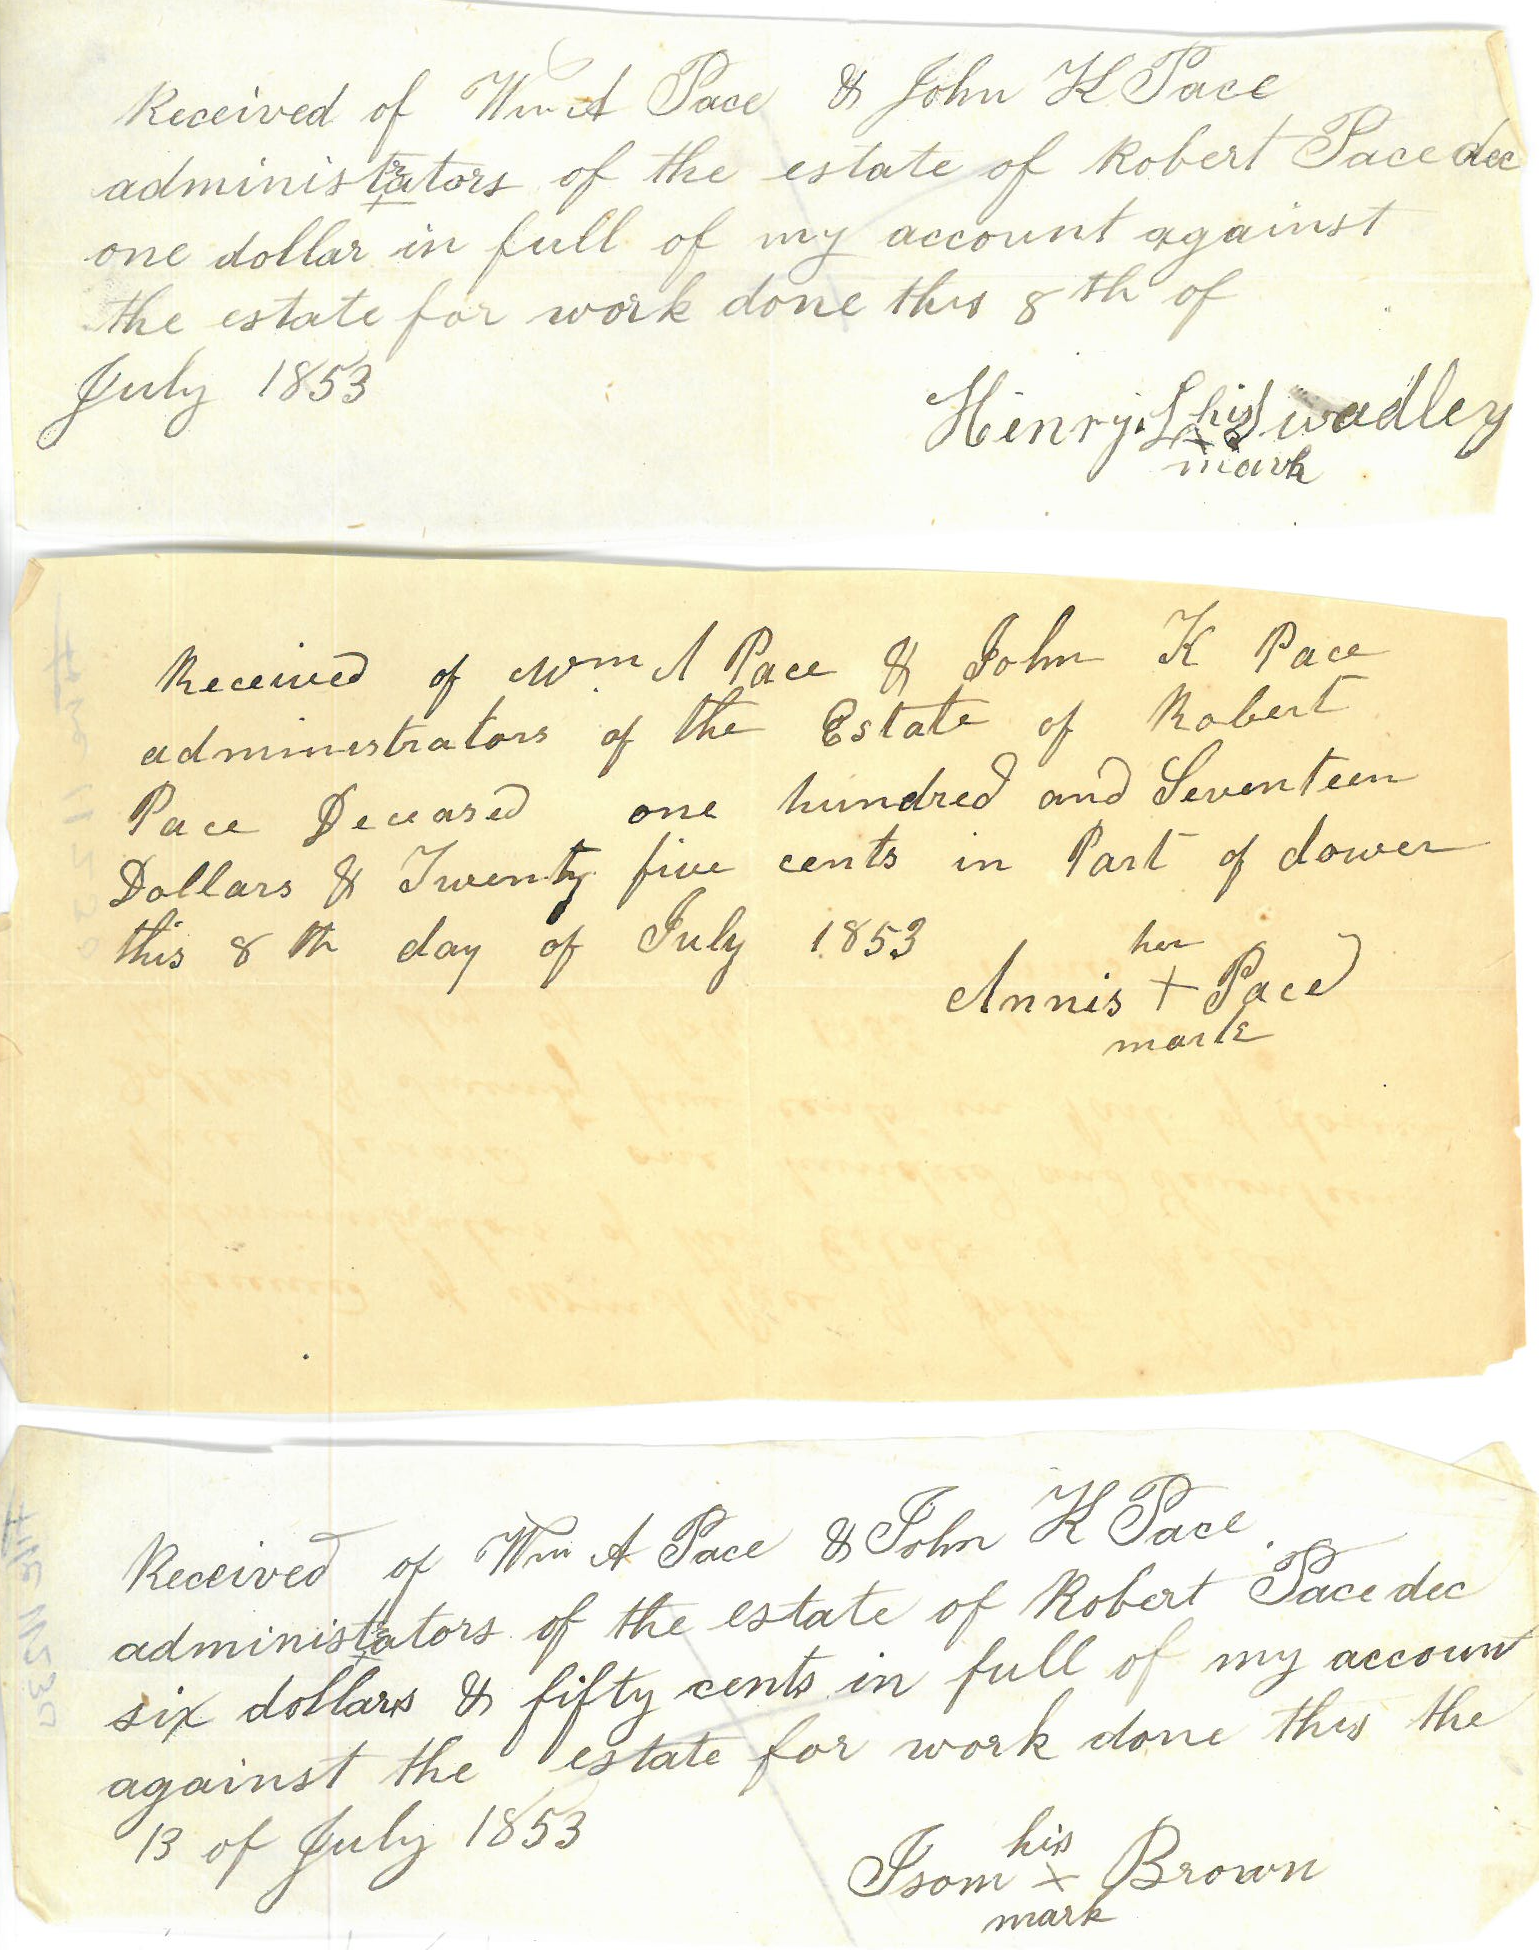 Received of Wm A Pace & John K Pace
administrators of the estate of Robert Pace dec
one dollar in full of my account against
the estate for work done this 8th of
July 1853
his
Henry. L x Swadley
mark
Received of Wm A Pace & John K Pace
administrators of the Estate of Robert
Pace Deceased one hundred and Seventeen
Dollars & Twenty five cents in Part of dower
this 8th day of July 1853
her
Annis + Pace
mark
Received of Wm A Pace & John K Pace
administrators of the estate of Robert Pace dec
six dollars & fifty cents in full of my account
against the estate for work done this the
13 of July 1853
his
Isom x Brown
mark